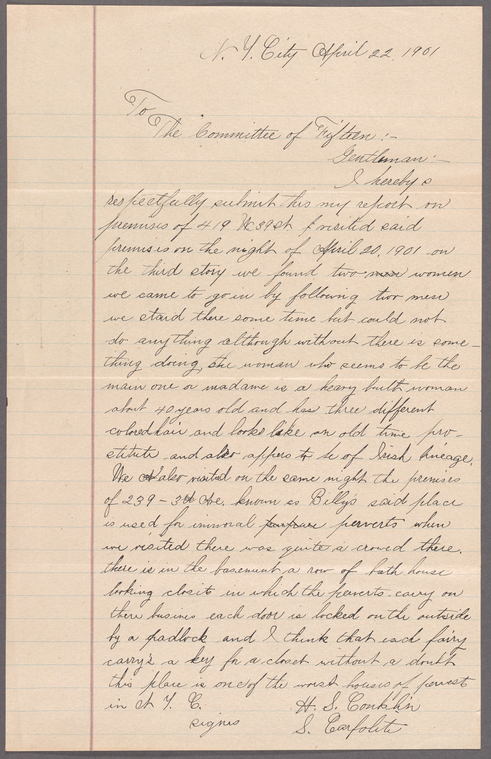 N. Y. City April 22, 1901
To
The Committee of Fifteen:-
Gentleman:-
I hereby
respectfully submit this my report on
premises of 419 W 39 st I visited said
premises on the night of April 20, 1901 on
the third story we found two men women
we came to go in by following two men
we staid there some time but could not
do anything although without there is some-
thing doing, the woman who seems to be the
main one or madame is a heavy built woman
about 40 years old and has three different
colored hair and looks like an old time pro-
stitute and also appers to be of Irish lineage.
We also visited on the same night the premises
of 239 - 3rd Ave. known as Billy's said place
is used for immoral purpose perverts when
we visited there was quite a crowd there.
there is in the basement a row of bath house
looking closits in which the perverts carry on
there busines each door is locked on the outside
by a padlock and I think that each fairy
carry's a key for a closet without a doubt
this place is one of the worst houses of perverts
in N Y. C.
H. S. Conklin
signed
S.